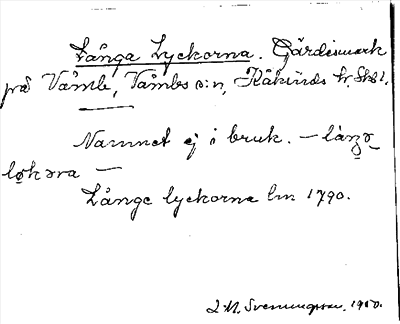 Långa Lyckorna. Gärdesmark
på Våmb, Våmbs s:n, Kåkinds hd, Skbl.
Namnet ej i bruk. — låŋə
lokəra —
Långe lyckorna lm 1790.
J. M. Svenungsson, 1910.